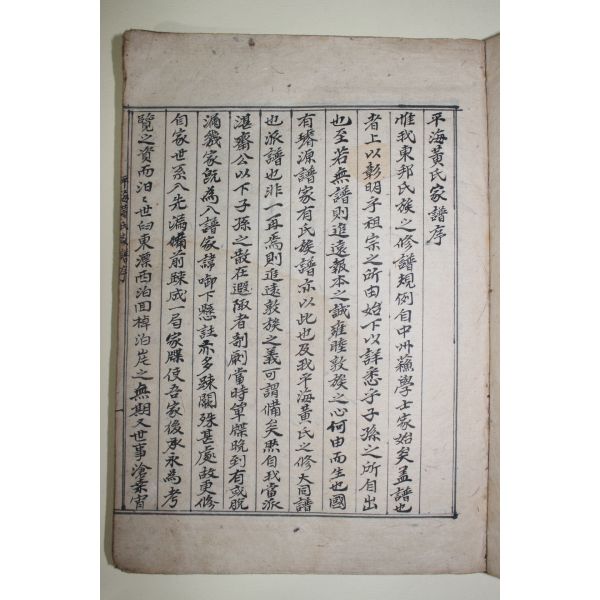 平海黃氏家譜序
惟我東邦氏族之修譜規例自中州蘓學士家始矣盖譜也
者上以彰明乎祖宗之所由始下以詳悉乎子孫之所自出
也至若無譜則追遠報本之誠雍睦敦族之心何由而生也國
有璿源譜家有氏族譜亦以此也及我平海黃氏之修大同譜
也派譜也非一再焉則追遠敦族之義可謂備矣然自我當派
湛齋公以下子孫之散在遐陬者剞劂當時單牒晩到有或脫
漏幾家旣為入譜家諱啣下懸註亦多疎闕殊甚處故更修
自家世系入先漏備前疎成一局家牒使吾家後承永為考
覽之資而汨〻世臼東漂西泊回棹泊岸之無期又世事滄桒宵
平海黃氏家譜序